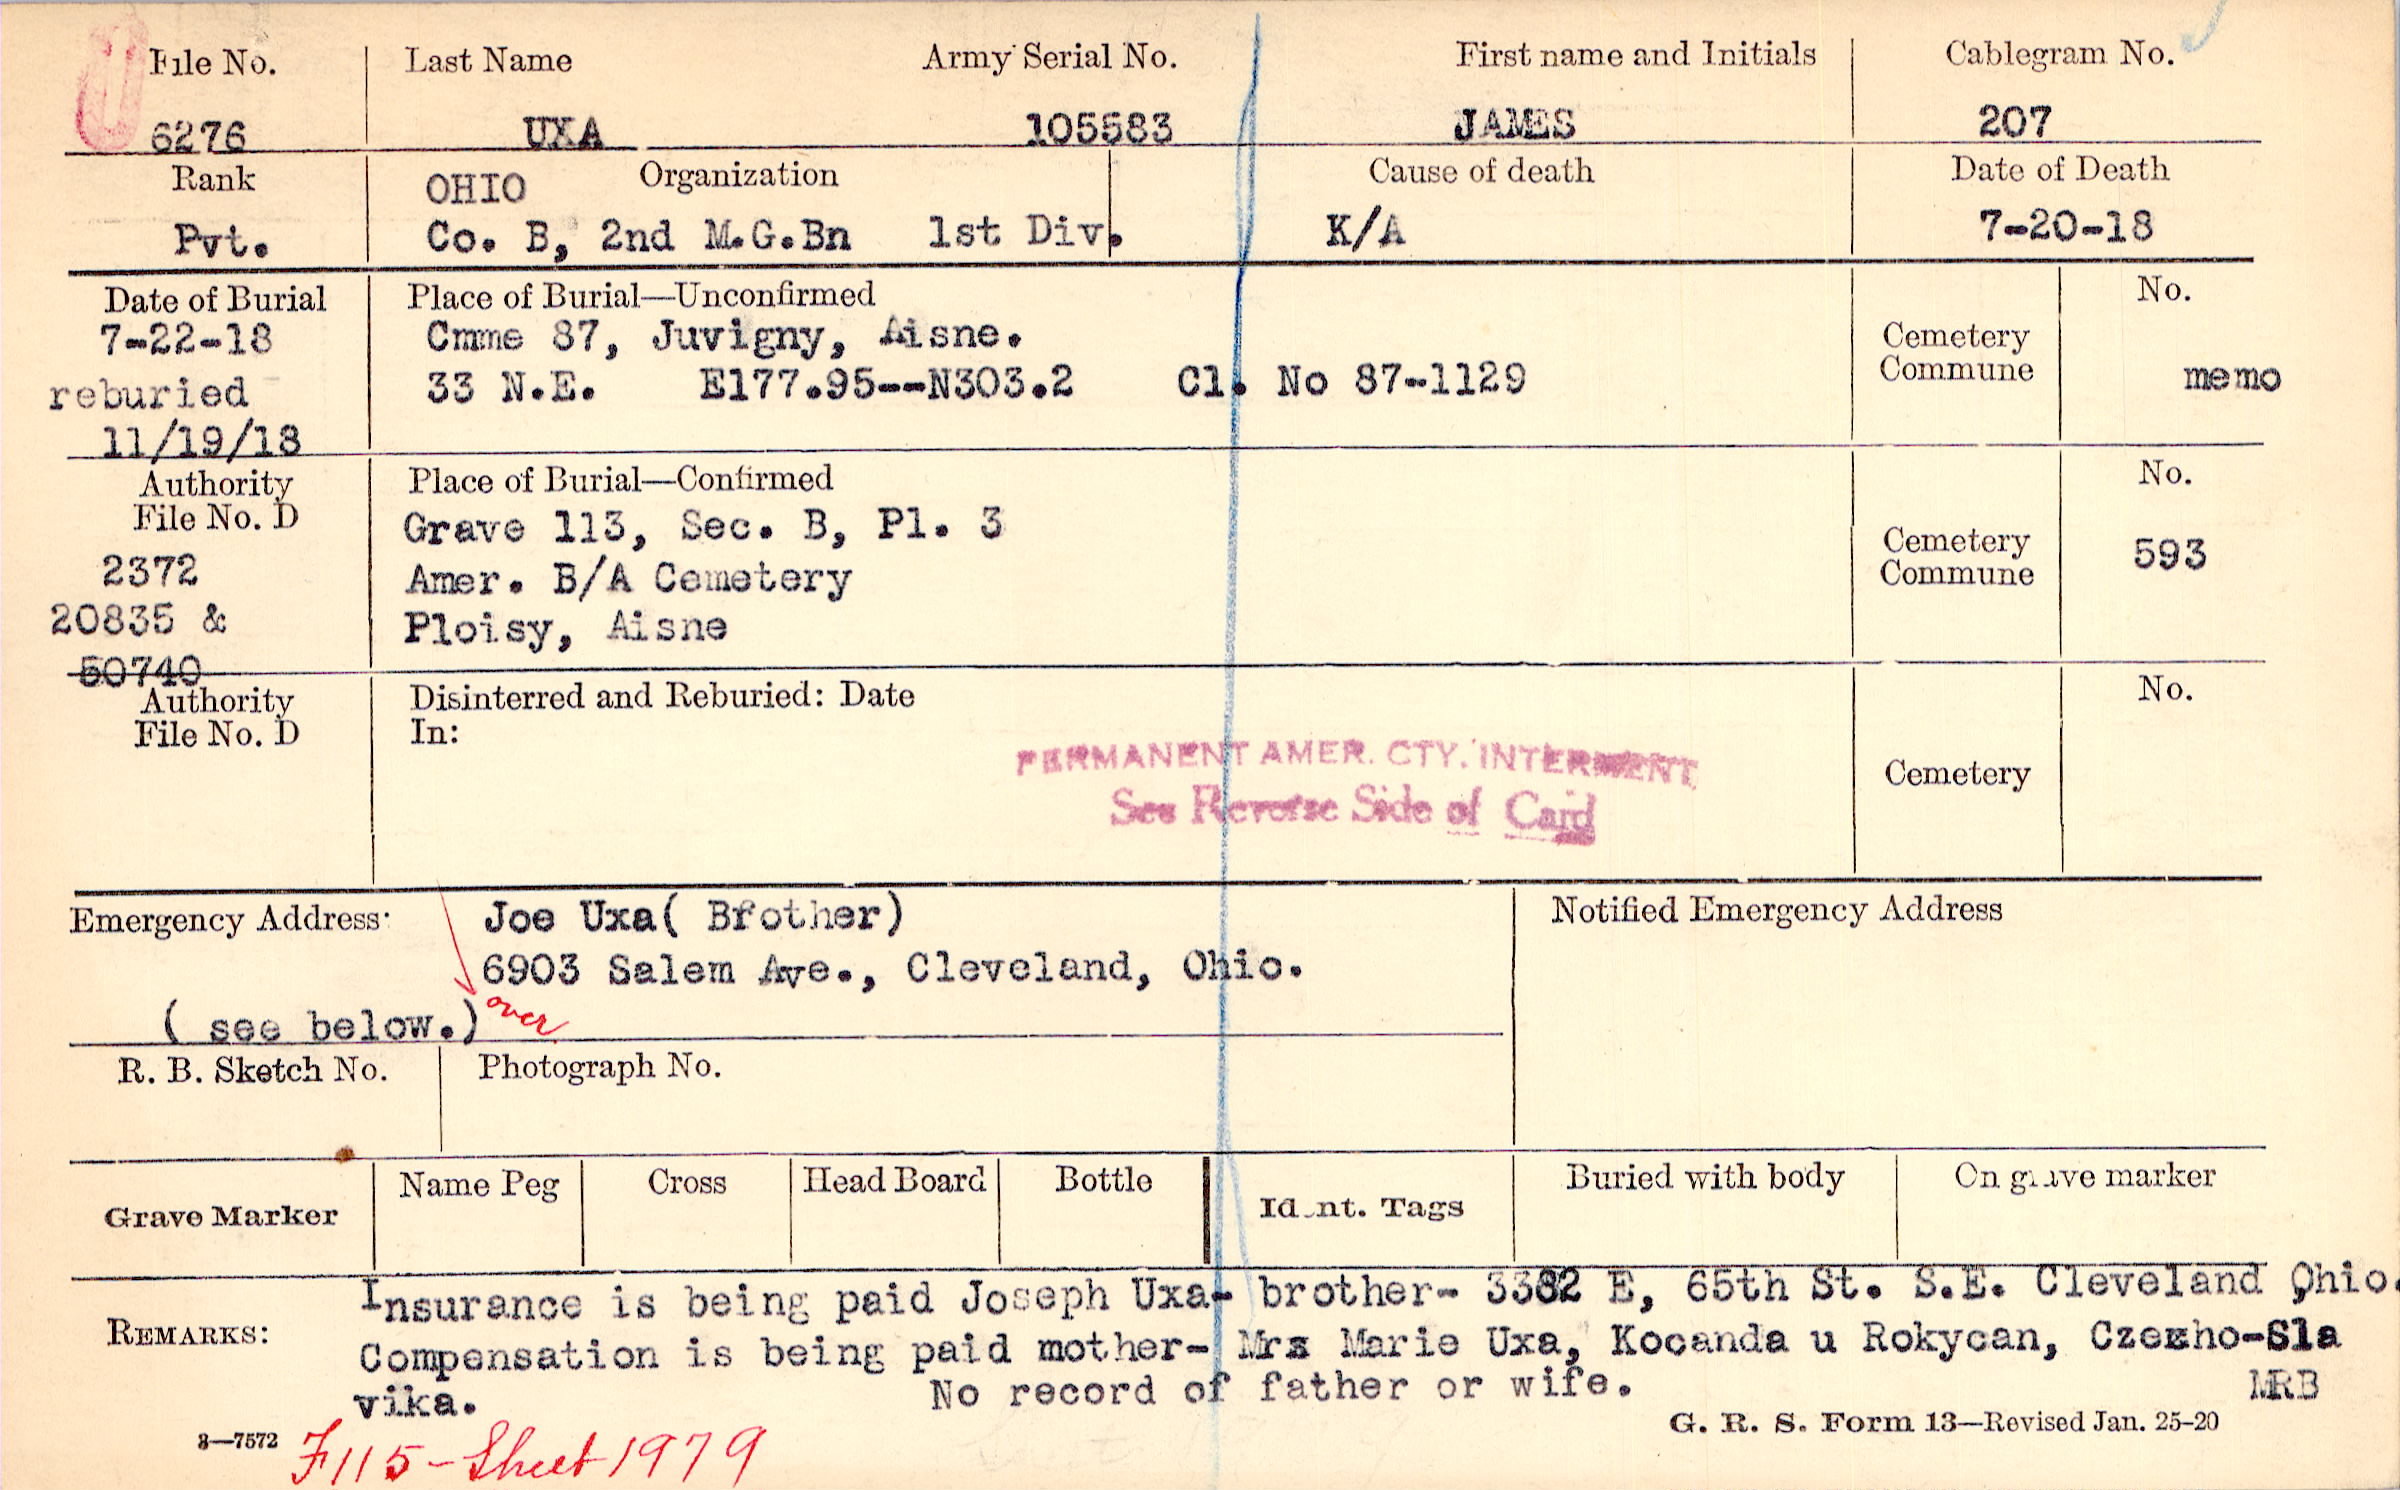 File No. Last Name Army Serial No. First name and Initials Cablegram No.
6276 UXA 105583 JAMES 207
Rank OHIO Organization Cause of death Date of Death
Pvt. Co. B, 2nd M.G.Bn 1st Div. K/A 7-20-18
Date of Burial Place of Burial—Unconfirmed No.
7-22-18 Cmme 87, Juvigny, Aisne. Cemetery
reburied 33 N.E. E177.95--N303.2 Cl. No 87-1129 Commune memo
11/19/18
Authority Place of Burial—Confirmed No.
File No. D Grave 113, Sec. B, Pl. 3 Cemetery
2372 Amer. B/A Cemetery Commune 593
20835 & Ploisy, Aisne
50740
Authority Disinterred and Reburied: Date No.
File No. D In:
PERMANENT AMER. CTY. INTERMENT Cemetery
See Reverse Side of Card
Emergency Address: Joe Uxa( Brother) Notified Emergency Address
6903 Salem Ave., Cleveland, Ohio.
( see below.) over
R. B. Sketch No. Photograph No.
Grave Marker Name Peg Cross Head Board Bottle Ident. Tags Buried with body On grave marker
Insurance is being paid Joseph Uxa- brother- 3382 E, 65th St. S.E. Cleveland Ohio.
REMARKS: Compensation is being paid mother- Mrs Marie Uxa, Kocanda u Rokycan, Czekho-Sla
vika. No record of father or wife. MRB
3—7572 F115-Sheet 1979 G. R. S. Form 13—Revised Jan. 25-20